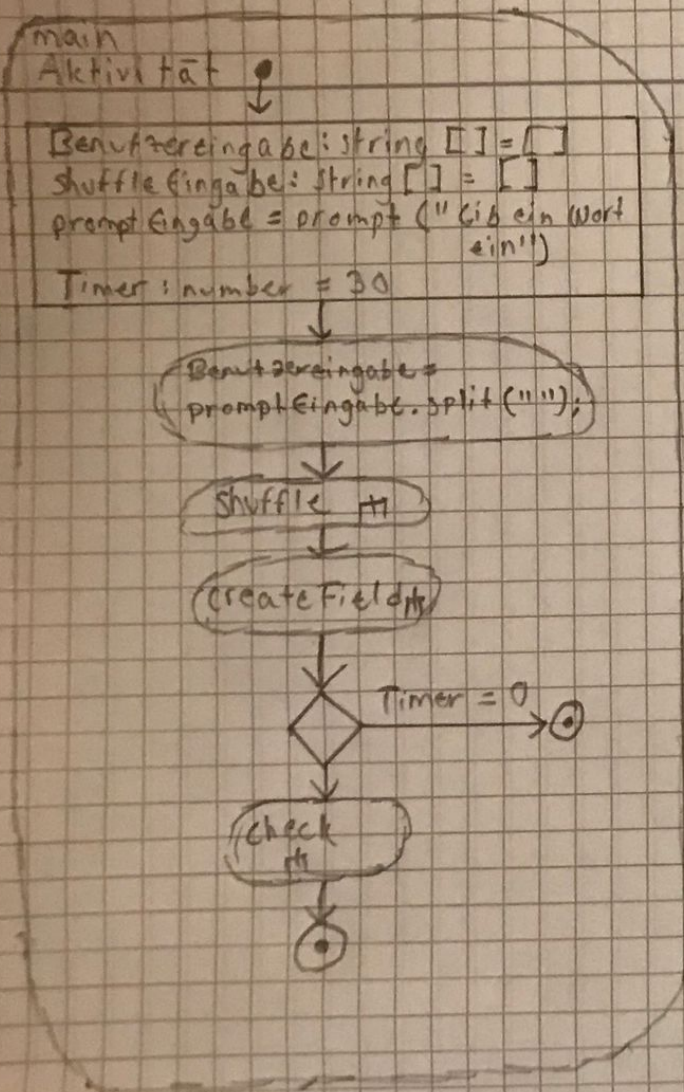 main
Aktivität
Benutzereingabe: string [] = []
shuffleEingabe: string [] = []
promptEingabe = prompt ("Gib ein Wort
ein")
Timer: number = 30
Benutzereingabe =
promptEingabe.split("");
shuffle
createField
Timer = 0
check